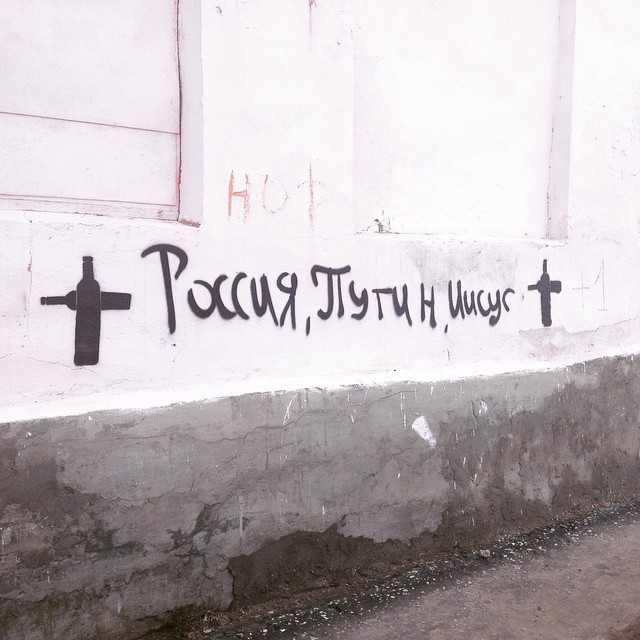 Россия, Путин, Иисус
+1